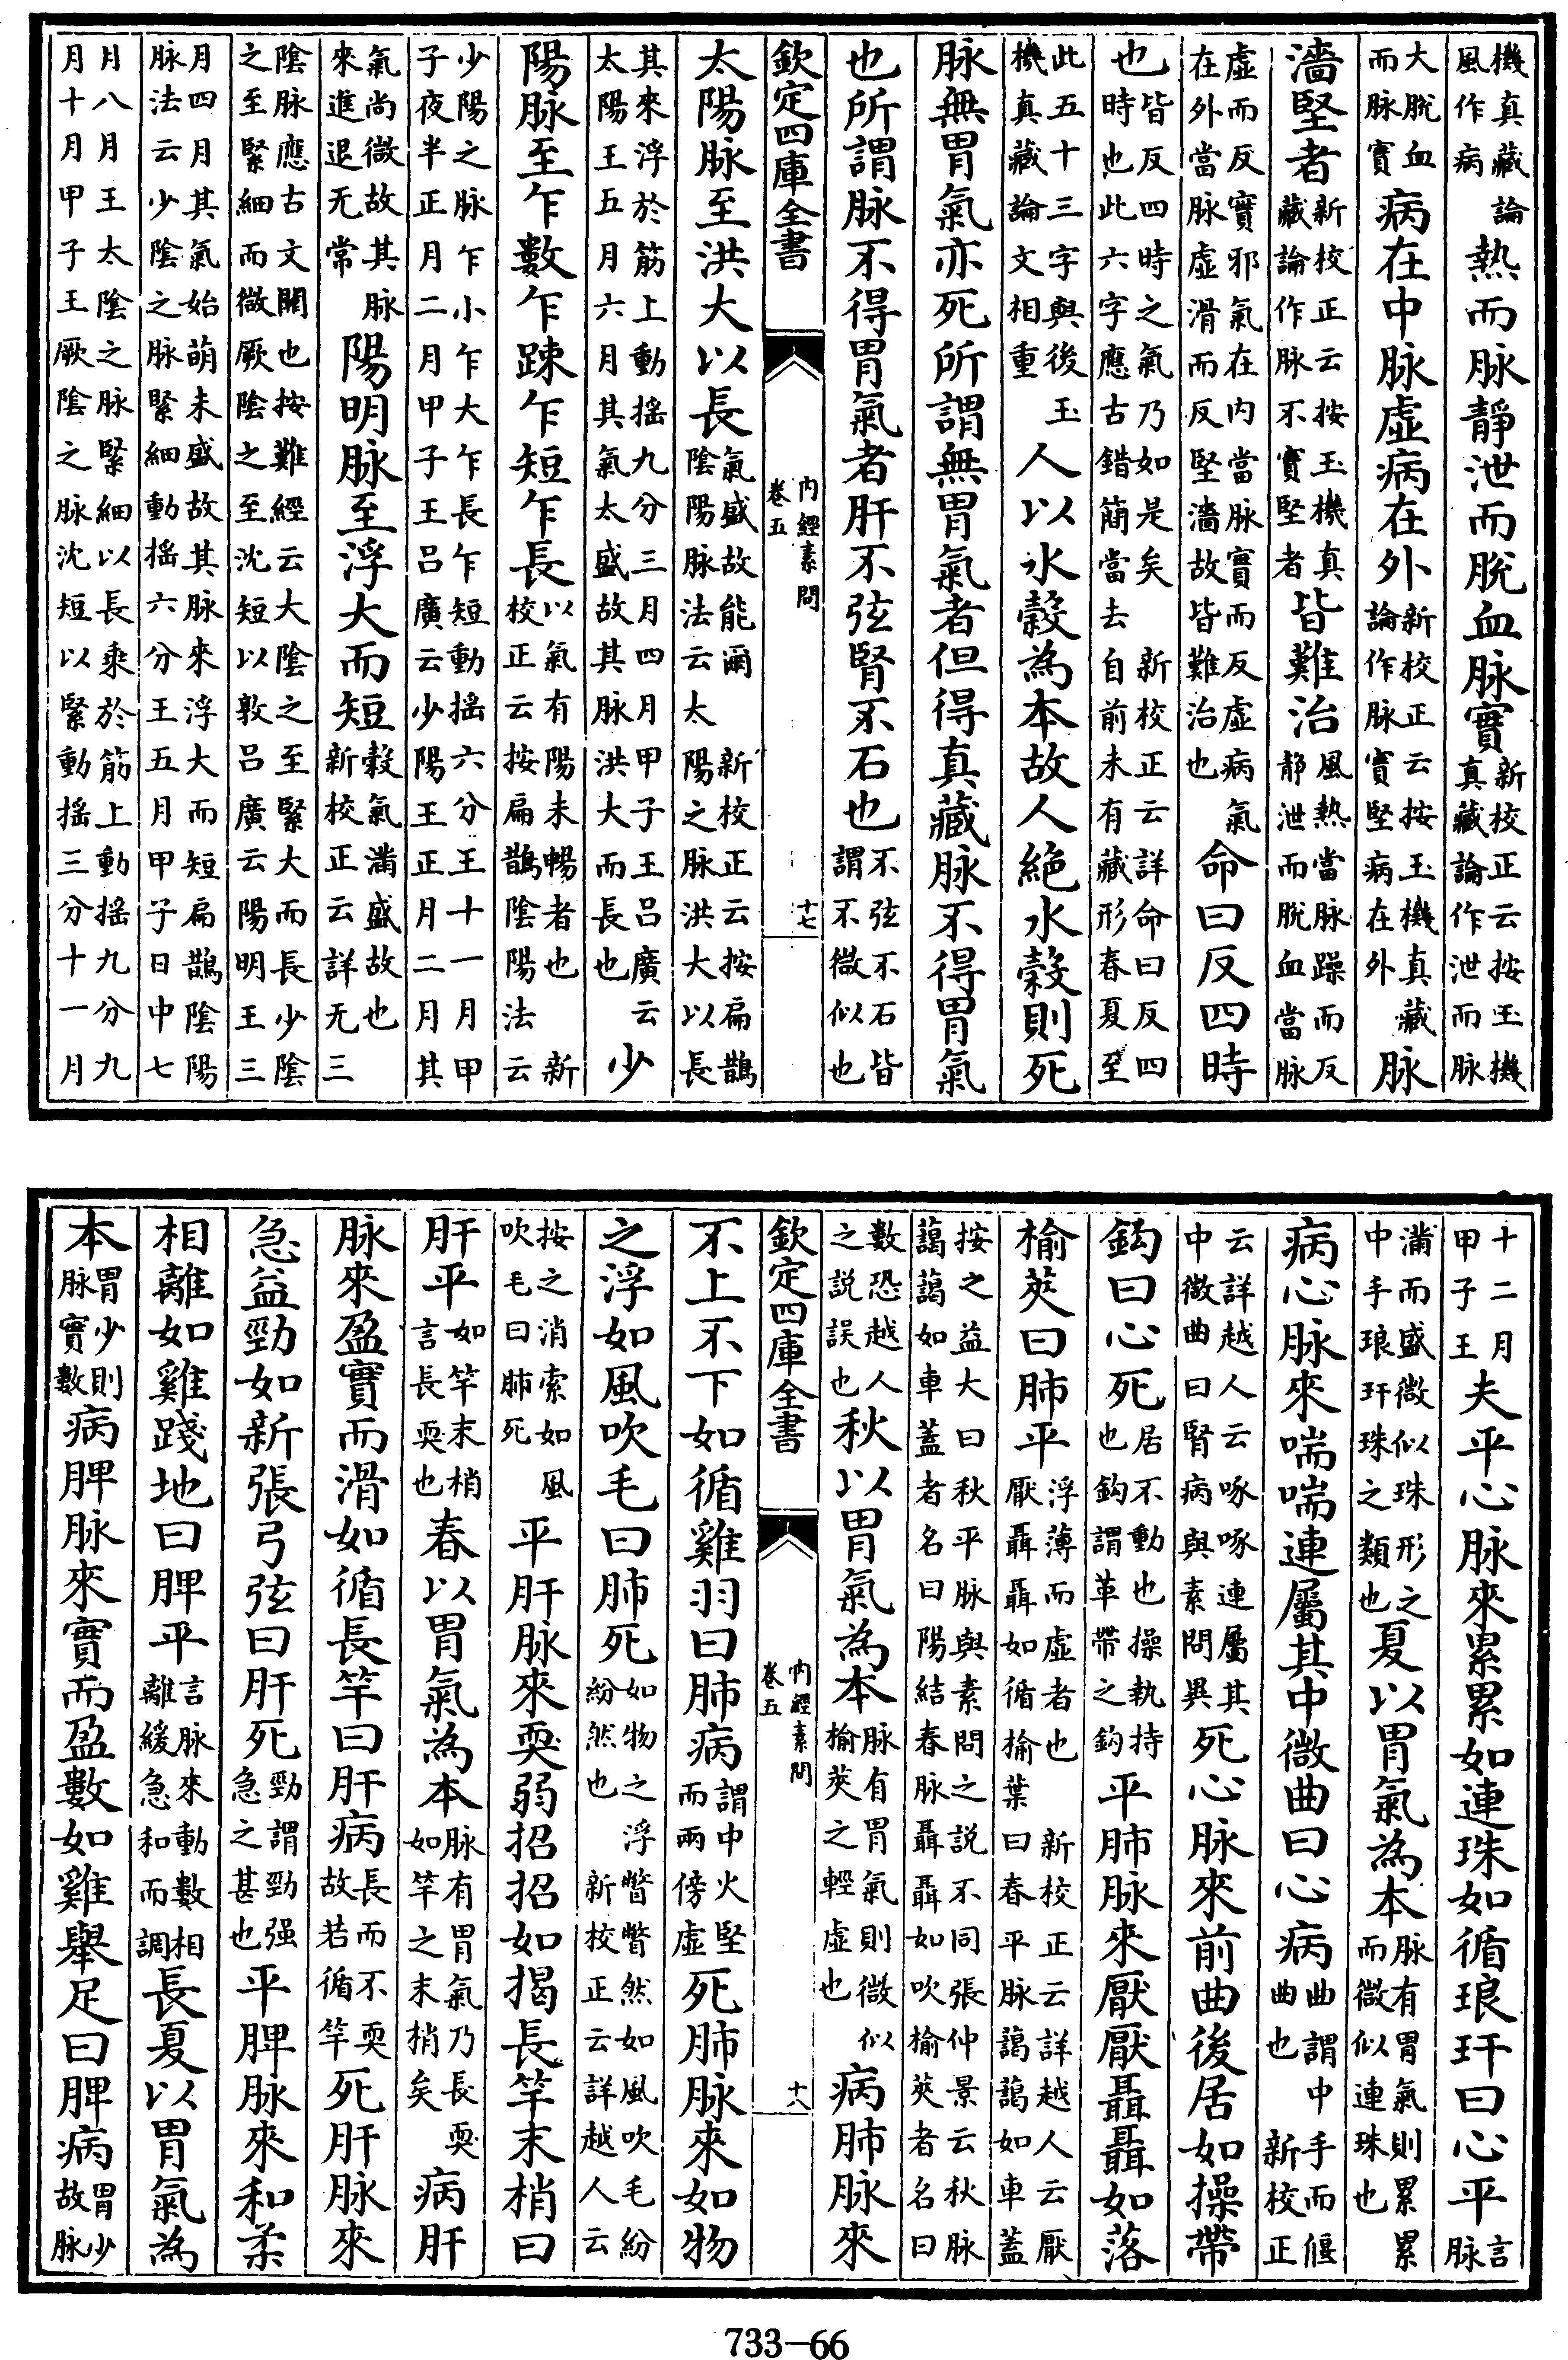 機真藏論風作病熱而脉靜泄而脱血脉實新校正云按玉機真藏論作泄而脉
大脱血而脉實病在中脉虚病在外新校正云按玉機真藏論作脉實堅病在外脉
濇堅者新校正云按玉機真藏論作脉不實堅者皆難治風熱當脉躁而反靜泄而脱血當脉
虚而反實邪氣在内當脉實而反虚病氣在外當脉虚滑而反堅濇故皆難治也命曰反四時
也皆反四時之氣乃如是矣 新校正云詳命曰反四時也此六字應古錯簡當去自前未有藏形春夏至
此五十三字與後玉機真藏論文相重人以水穀為本故人絶水穀則死
脉無胃氣亦死所謂無胃氣者但得真藏脉不得胃氣
也所謂脉不得胃氣者肝不弦腎不石也不弦不石皆謂不微似也
欽定四庫全書 内經素問 卷五 十七
太陽脉至洪大以長氣盛故能爾 新校正云按扁鵲陰陽脉法云太陽之脉洪大以長
其來浮於筋上動揺九分三月四月甲子王吕廣云太陽王五月六月其氣太盛故其脉洪大而長也少
陽脉至乍數乍踈乍短乍長以氣有陽未暢者也 新校正云按扁鵲陰陽法云
少陽之脉乍小乍大乍長乍短動揺六分王十一月甲子夜半正月二月甲子王吕廣云少陽王正月二月其
氣尚微故其脉來進退无常陽明脉至浮大而短穀氣滿盛故也新校正云詳无三
陰脉應古文闕也按難經云大陰之至緊大而長少陰之至緊細而微厥陰之至沈短以敦吕廣云陽明王三
月四月其氣始萌未盛故其脉來浮大而短扁鵲陰陽脉法云少陰之脉緊細動揺六分王五月甲子日中七
月八月王太陰之脉緊細以長乘於筋上動揺九分九月十月甲子王厥陰之脉沈短以緊動揺三分十一月
十二月甲子王夫平心脉來累累如連珠如循琅玕曰心平言脉
滿而盛微似珠形之中手琅玕珠之類也夏以胃氣為本脉有胃氣則累累而微似連珠也
病心脉來喘喘連屬其中微曲曰心病曲謂中手而偃曲也 新校正
云詳越人云啄啄連屬其中微曲曰腎病與素問異死心脉來前曲後居如操帶
鈎曰心死居不動也操執持也鈎謂革帶之鈎平肺脉來厭厭聶聶如落
榆莢曰肺平浮薄而虚者也 新校正云詳越人云厭厭聶聶如循榆葉曰春平脉藹藹如車蓋
按之益大曰秋平脉與素問之説不同張仲景云秋脉藹藹如車蓋者名曰陽結春脉聶聶如吹榆莢者名曰
數恐越人之説誤也秋以胃氣為本脉有胃氣則微似榆莢之輕虚也病肺脉來
欽定四庫全書 内經素問 卷五 十八
不上不下如循雞羽曰肺病謂中火堅而兩傍虚死肺脉來如物
之浮如風吹毛曰肺死如物之浮瞥瞥然如風吹毛紛紛然也 新校正云詳越人云
按之消索如風吹毛曰肺死平肝脉來耎弱招招如揭長竿末梢曰
肝平如竿末梢言長耎也春以胃氣為本脉有胃氣乃長耎如竿之末梢矣病肝
脉來盈實而滑如循長竿曰肝病長而不耎故若循竿死肝脉來
急益勁如新張弓弦曰肝死勁謂勁强急之甚也平脾脉來和柔
相離如雞踐地曰脾平言脉來動數相離緩急和而調長夏以胃氣為
本胃少則脉實數病脾脉來實而盈數如雞舉足曰脾病胃少故脉
733-66